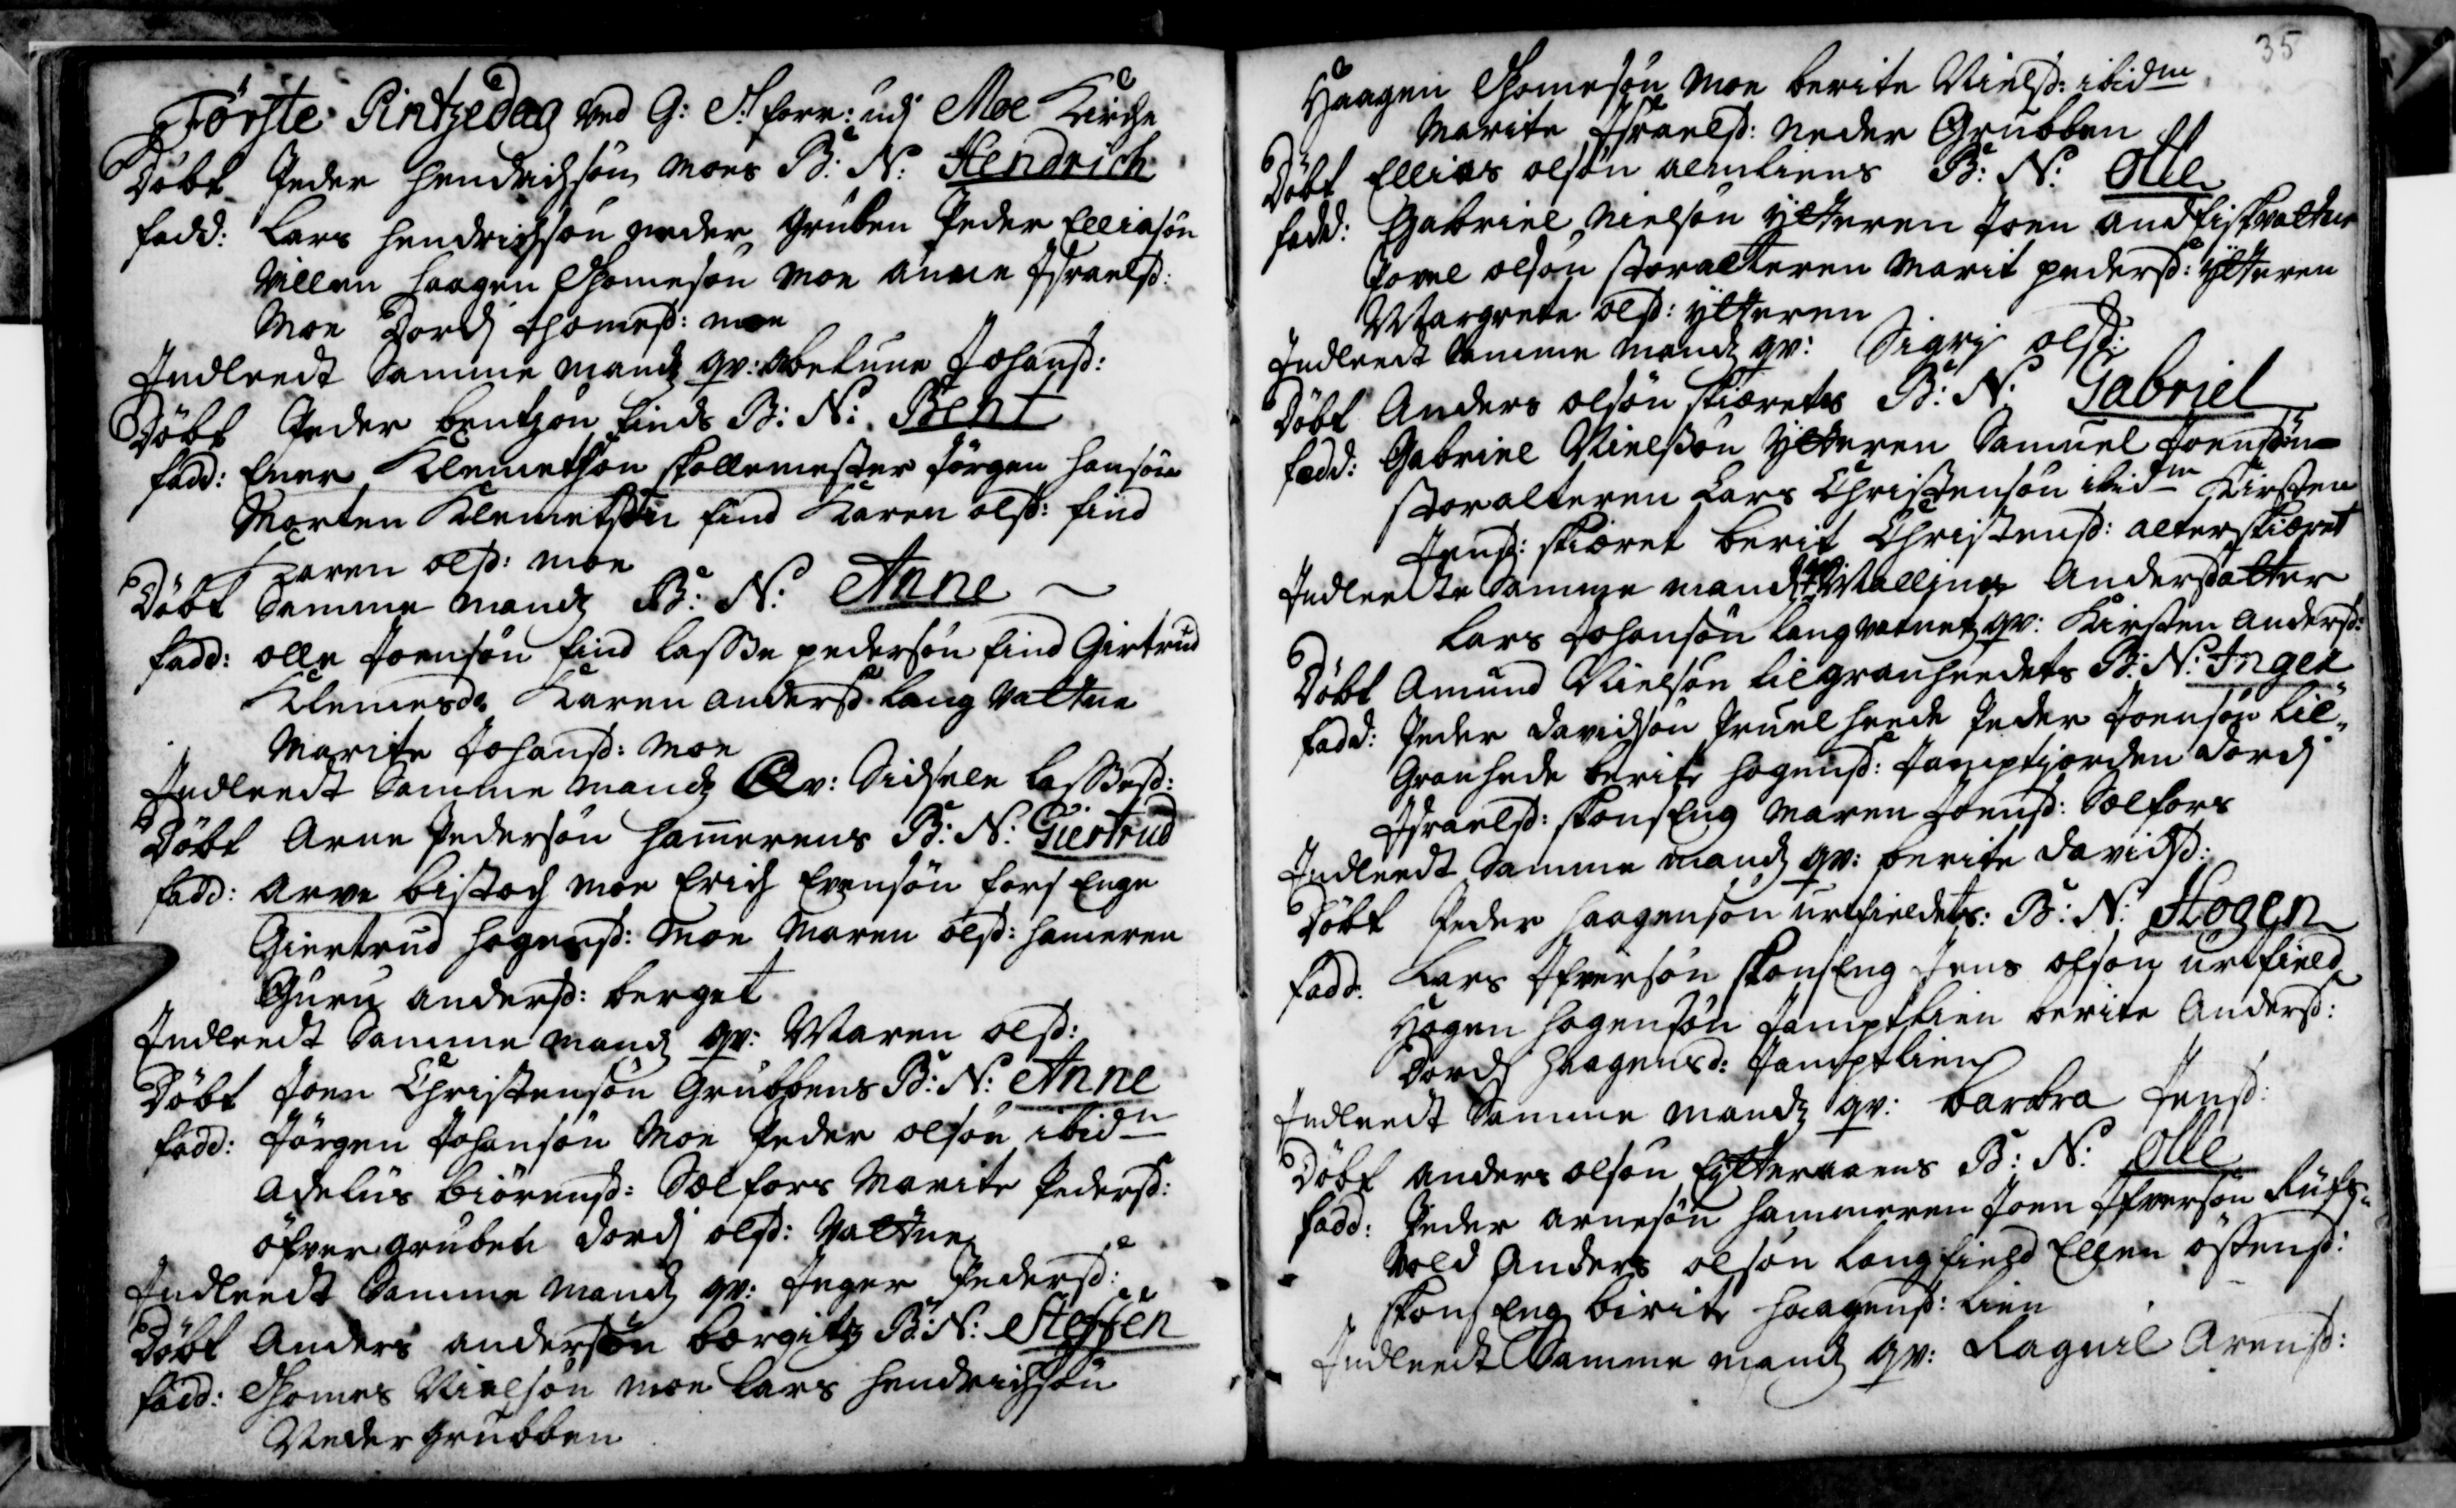 Förste Pintzedag ved G: T: forr: udj Moe Kirche
Döbt Peder Hendrichsön Moes B: N: Hendrich
fadd: Lars Hendrichsön neder Gruben Peder Elliasön
Villen Haagen Thomesön Moe Anne Israelsd:
Moe Dordj Thomesd: Moe
Indleedt Samme Mandz qv: Abelune Johansd:
Döbt Peder bentsön finds B: N: Bent
fadd: Ener Klemetsön skollemester Jörgen Hansön
Morten Klemetsön find Karen olsd: find
Karen olsd: Moe
Döbt Samme Mandz B: N: Anne
fadd: olle Joensön find Lasse pedersön find Girtrud
Klemesd Karen Andersd: Langvattne
Marite Johansd: Moe
Indleedt Samme Mandz Qv: Sidsele Lassesd:
Döbt Arne Pedersön Hamerens B: N: Giertrud
fadd: Arve bistoch Moe Erich Evensön fors Enge
Giertrud Hogensd: Moe Maren olsd: Hameren
Guru Andersd: berget
Indleedt Samme Mandz qv: Maren olsd:
Döbt Joen Christensön Grubbens B: N: Anne
fadd: Jörgen Johansön Moe Peder olsön ibidm
Adelus Biörensd: Sælfors Marite Pedersd:
öfver gruben Dordj olsd: Valtne
Indleedt Samme Mandz qv: Inger Pedersd:
Döbt Anders Andersön bærgitz B: N: Steffen
fadd: Thomes Nielsön Moe Lars Hendrichsön
Neder grubben
35
Haagen Thomesön Moe berite Nielsd: ibidm
Marite Israelsd: Neder Grubben
Döbt Ellias olsön B: N: Olle
fadd: Gabriel Nielsön ytteren Joen And fiskvattne
Povel olsön storalteren Marit pedersd: ytteren
Margrete olsd: ytteren
Indleedt Samme Mandz qv: Sigrj olsd:
Döbt Anders olsön skiærets B: N: Gabriel
fadd: Gabriel Nielsön ytteren Samuel Joensön
storalteren Lars Christensön ibidm Kirsten
Jensd: skiæret berit Christensd: alterskiæret
Indleedte Samme mandz qv Mallene Andersdatter
Lars Johansön Langvatnetz qv: Kirsten Andersd:
Döbt Amund Nielsön Lilgranheedets B: N: Inger
fadd: Peder Davidsön Pruelheede Peder Joensön Lil
Granhede berite Hogensd: Jamptjorden Dordj
Israelsd: skonsEng Maren Joensd: Sælfors
Indleedt Samme mandz qv: berite Davidsd:
Döbt Peder Haagensön urtfieldetz: B: N: Hogen
fadd. Lars Ifversön skonsEng Jens olsön urtfield
Hogen Hogensön Jamptlien berite Andersd:
Dordj Haagensd: Jamptlien
Indleedt Samme Mandz qv: barbra Jensd:
Döbt Anders olsön B: N: Olle
fadd: Peder Arnesön Hammeren Joen Ifversön
vold Anders olsön Langfield Ellen östensd:
skonsEng birite Haagensd: Lien
Indleedt Samme mandz qv: Ragnil Arensd: